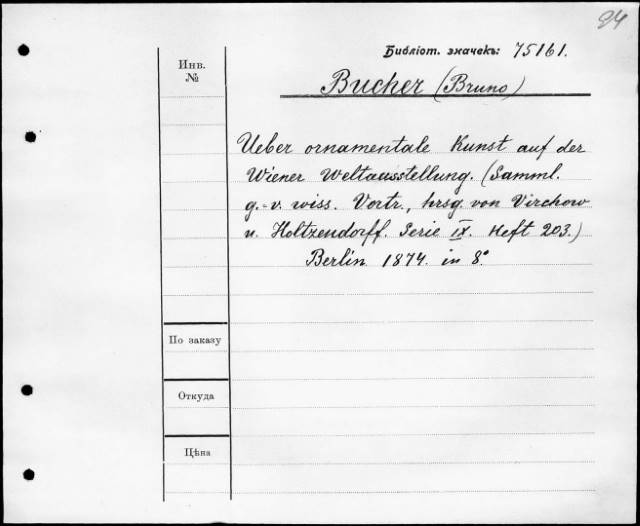 84
Библіот. значекъ: 75161.
Инв.
№
Bucher (Bruno)
Ueber ornamentale Kunst auf der
Wiener Weltausstellung. (Samml.
g.-v. wiss. Vortr., hrsg. von Virchow
u. Holtzendorff. Serie IX. Heft 203.)
Berlin 1874. in 8°.
По заказу
Откуда
Цѣна